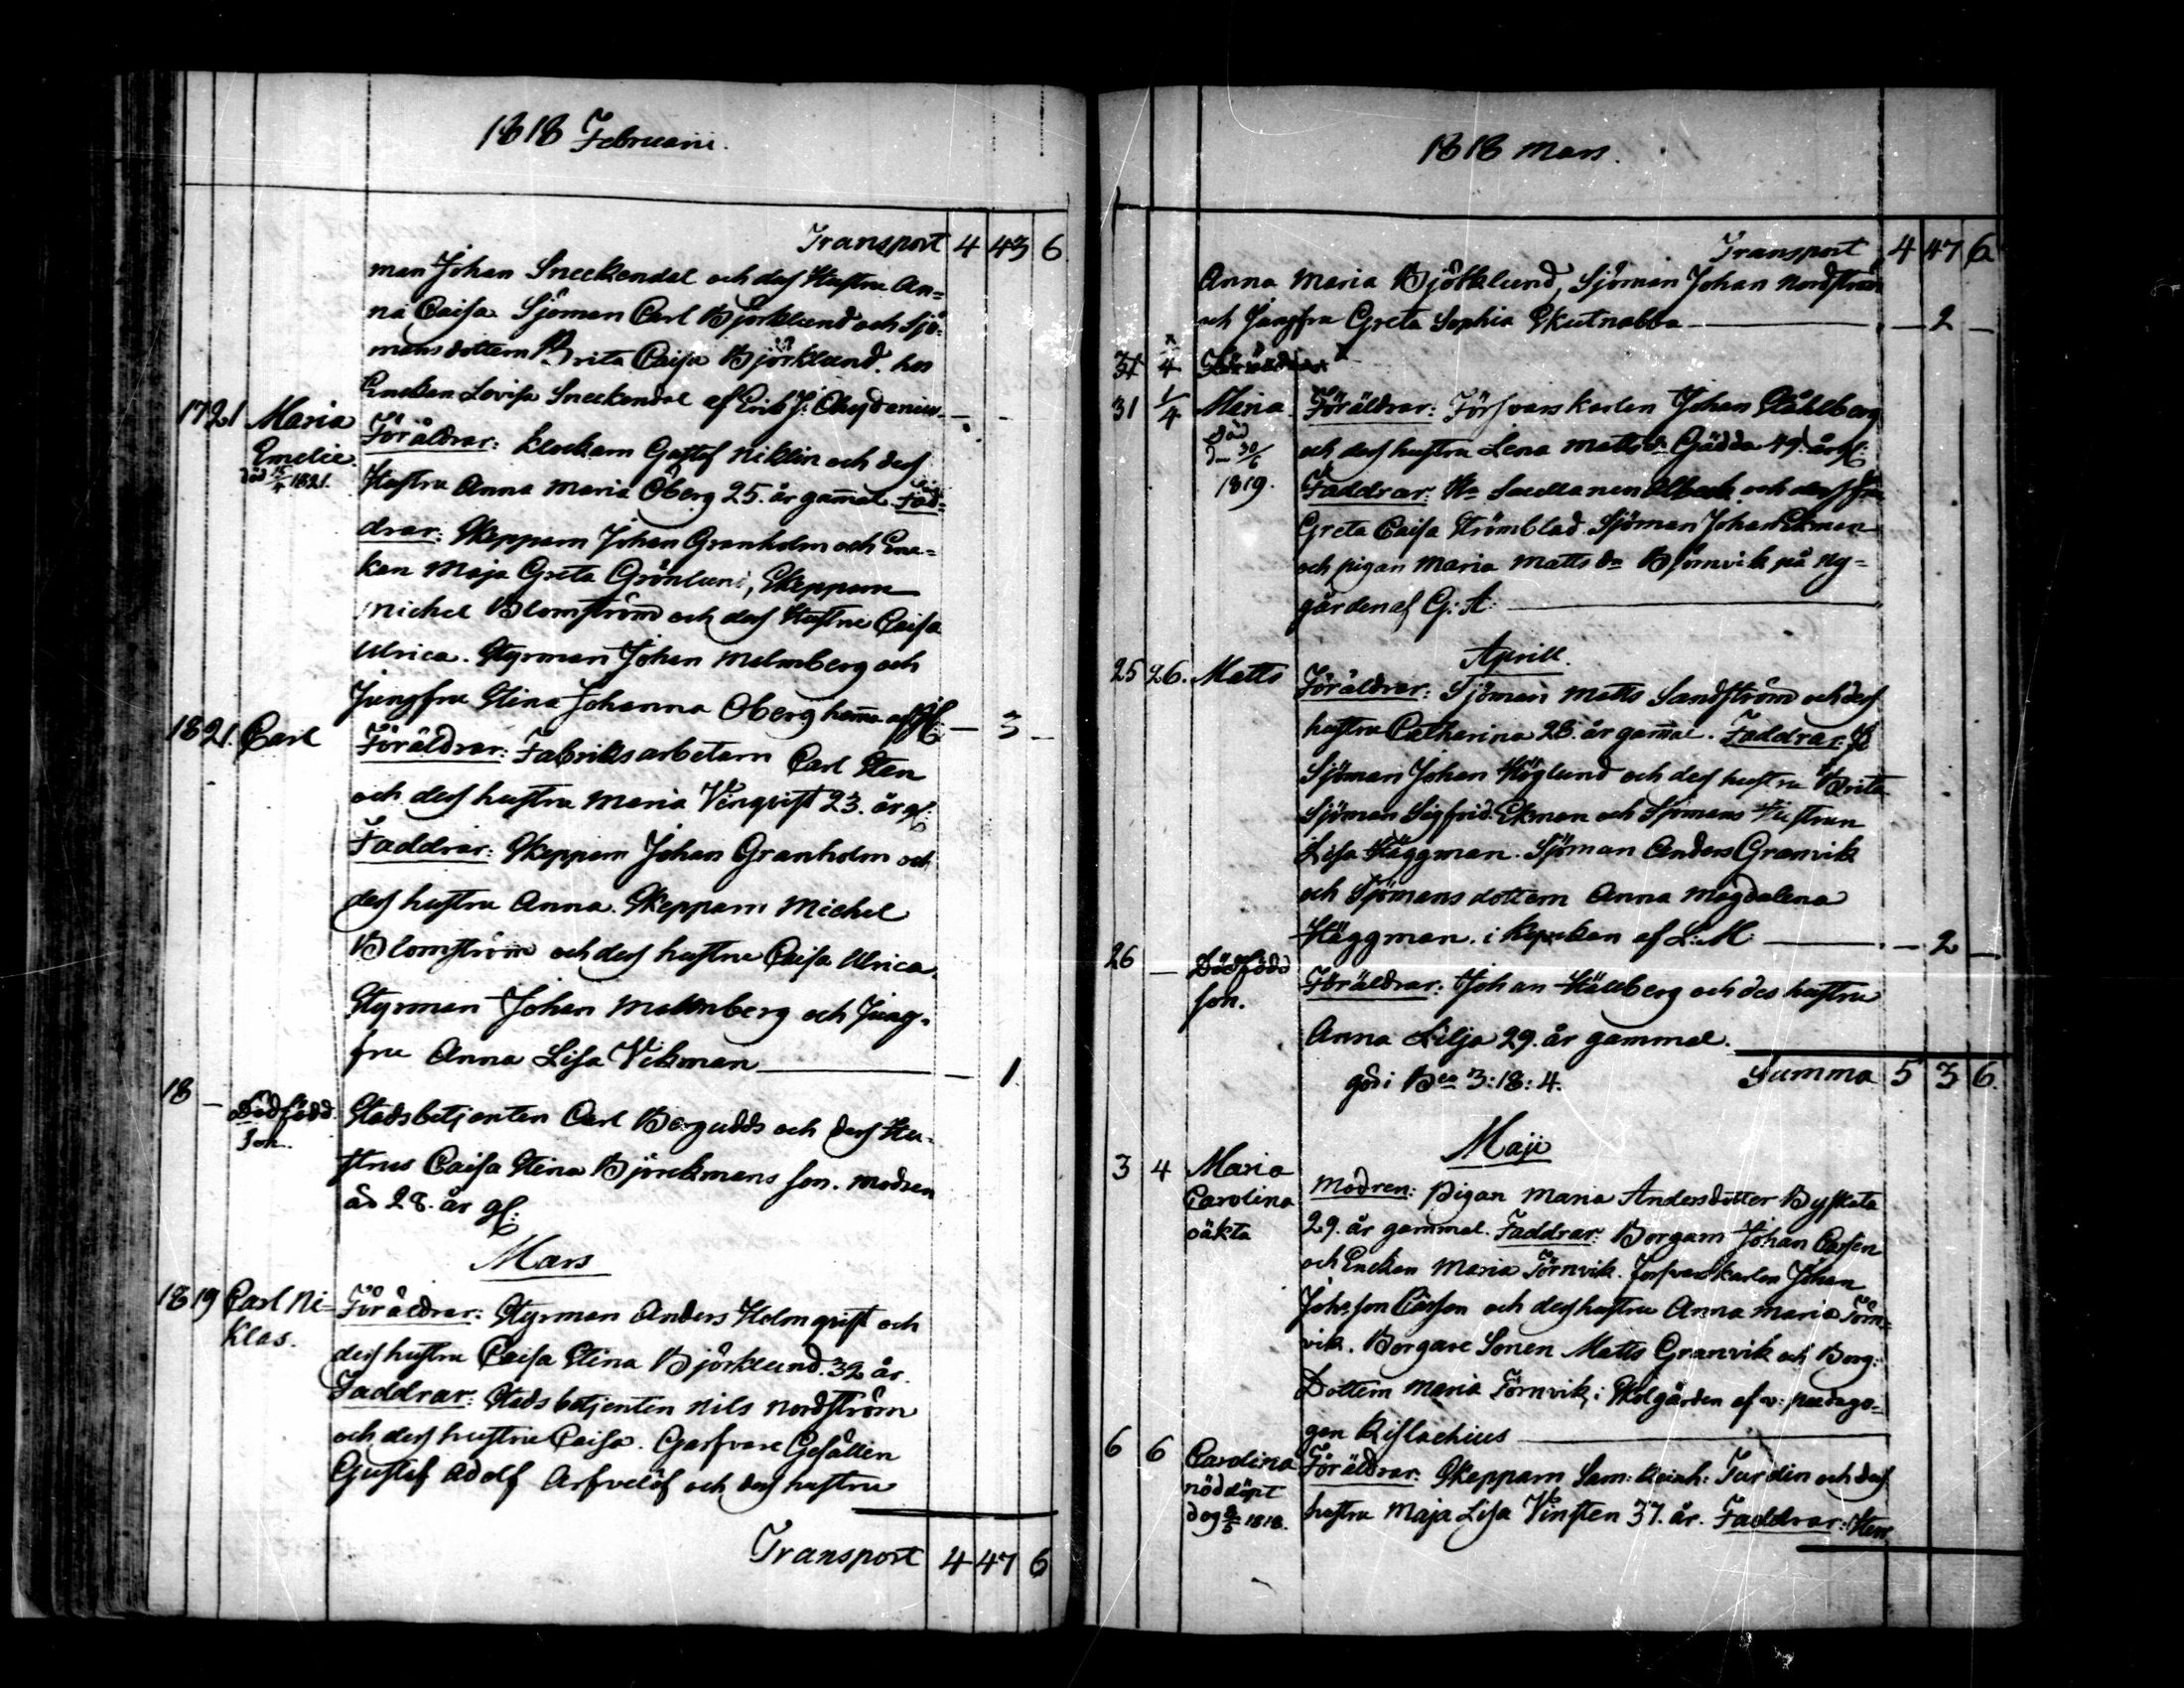 1818 Februarii.
Transport 4 43 6
man Johan Sneckendal och dess Hustru An=
na Caisa Sjöman Carl Björklund och Sjö=
mans dottern Brita Caisa Björklund. hos
Enckan Lovisa Sneckendal af Erik J: Chydenius — -
17 21 Maria Föräldrar: Klockarn Gustaf Niklin och dess
Emelie. Hustru Anna Maria Öberg 25. år gamal Fad=
död 15/4 1821.
drar: Skepparn Johan Granholm och Enc=
kan Maja Greta Grönlund, Skepparn
Michel Blomström och dess Hustru Caisa
Ulrica. Styrman Johan Malmberg och
Jungfru Stina Johanna Öberg hema af — 3 —
18 21. Carl Föräldrar: Fabriksarbetarn Carl Sten
och dess hustru Maria Vinqvist 23. år gl:
Faddrar: Skepparn Johan Granholm och
dess hustru Anna. Skepparn Michel
Blomström och dess hustru Caisa Ulrica.
Styrman Johan Malmberg och Jung=
fru Anna Lisa Vikman — 1.
18 — Dödfödd Stadsbetjenten Carl Bergudds och dess Hu=
Son. strus Caisa Stina Björckmans son. modren
åd 28. år gl:
Mars
18 19 Carl Ni= Föräldrar: Styrman Anders Holmqvist och
klas. dess hustru Caisa Stina Björklund. 32 år.
Faddrar: Stads betjenten Nils Nordström
och dess hustru Caisa. Garfvare Gesällen
Gustaf Adolf Arfvelöf och dess hustru
Transport 4 47 6
1818 Mars.
Transport 4 47 6
Anna Maria Björklund, Sjöman Johan Nordström
och Jungfru Greta Sophia Skutnabba — — 2 —
31 4
31 1/4 Mina. Föräldrar: Försvarskarlen Johan Ståhlberg
Död och dess hustru Lena Matts dr Gädda 49. år gl:
d. 30/6 1819. Faddrar: Ahlbeck och dess fru
Greta Caisa Strömblad. Sjöman Johan Ekman
och pigan Maria Matts dr Björnvik på Ny=
gården af G: A: —
Aprill.
25 26. Matts Föräldrar: Sjöman Matts Sandström och dess
hustru Catharina 28. år gamal. Faddrar:
Sjöman Johan Höglund och dess hustru Brita
Sjöman Sigfrid Ekman och Sjömans Hustrun
Lisa Häggman. Sjöman Anders Granvik
och Sjömans dottern Anna Magdalena
Häggman. i kyrckan af L: M: — — 2 —
26 — Dödfödd Föräldrar: Johan Hällberg och des hustru
son. Anna Lilja 29. år gammal.
gör i Bco 3: 18: 4. Summa 5 3 6.
Maji
3 4 Maria Modren: Pigan Maria Andersdotter Byskata
Carolina 29. år gammal. Faddrar: Borgarn Johan Carsen
oäkta och Enckan Maria Törnvik. Försvarskarlen Johan
Johs son Carsen och dess hustru Anna Maria Törn=
vik. Borgare Sonen Matts Granvik och Borg:
Dottern Maria Törnvik, i Skolgården af v: pædago=
gen Rislachius —
6 6 Carolina Föräldrar: Skepparn Sam: Reinh: Turdin och dess
nöddöpt hustru Maja Lisa Vinsten 37. år. Faddrar:
dog 1818.